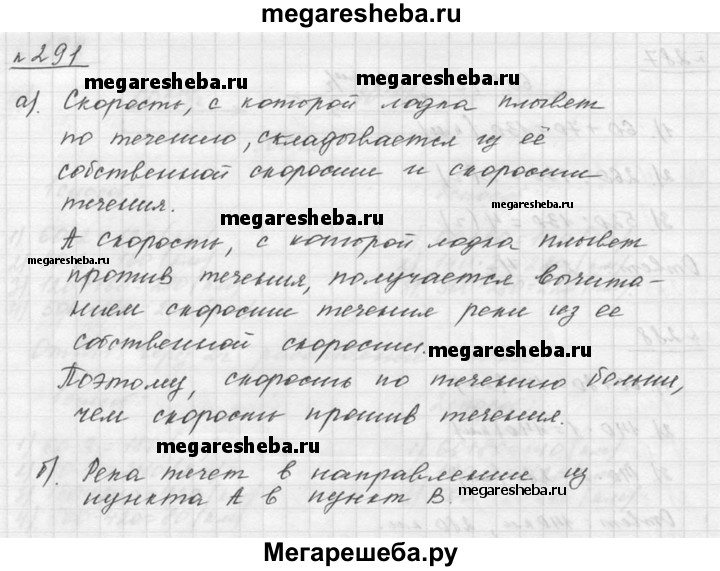 megaresheba.ru
№291
megaresheba.ru
megaresheba.ru
а). Скорость, с которой лодка плывет
по течению, складывается из её
собственной скорости и скорости
течения.
megaresheba.ru
А скорость, с которой лодка плывет
megaresheba.ru
против течения, получается вычита-
нием скорости течения реки из ее
собственной скорости.
megaresheba.ru
Поэтому, скорость по течению больше,
чем скорость против течения.
megaresheba.ru
б). Река течет в направлении из
пункта А в пункт В.
megaresheba.ru
Мегарешеба.ру